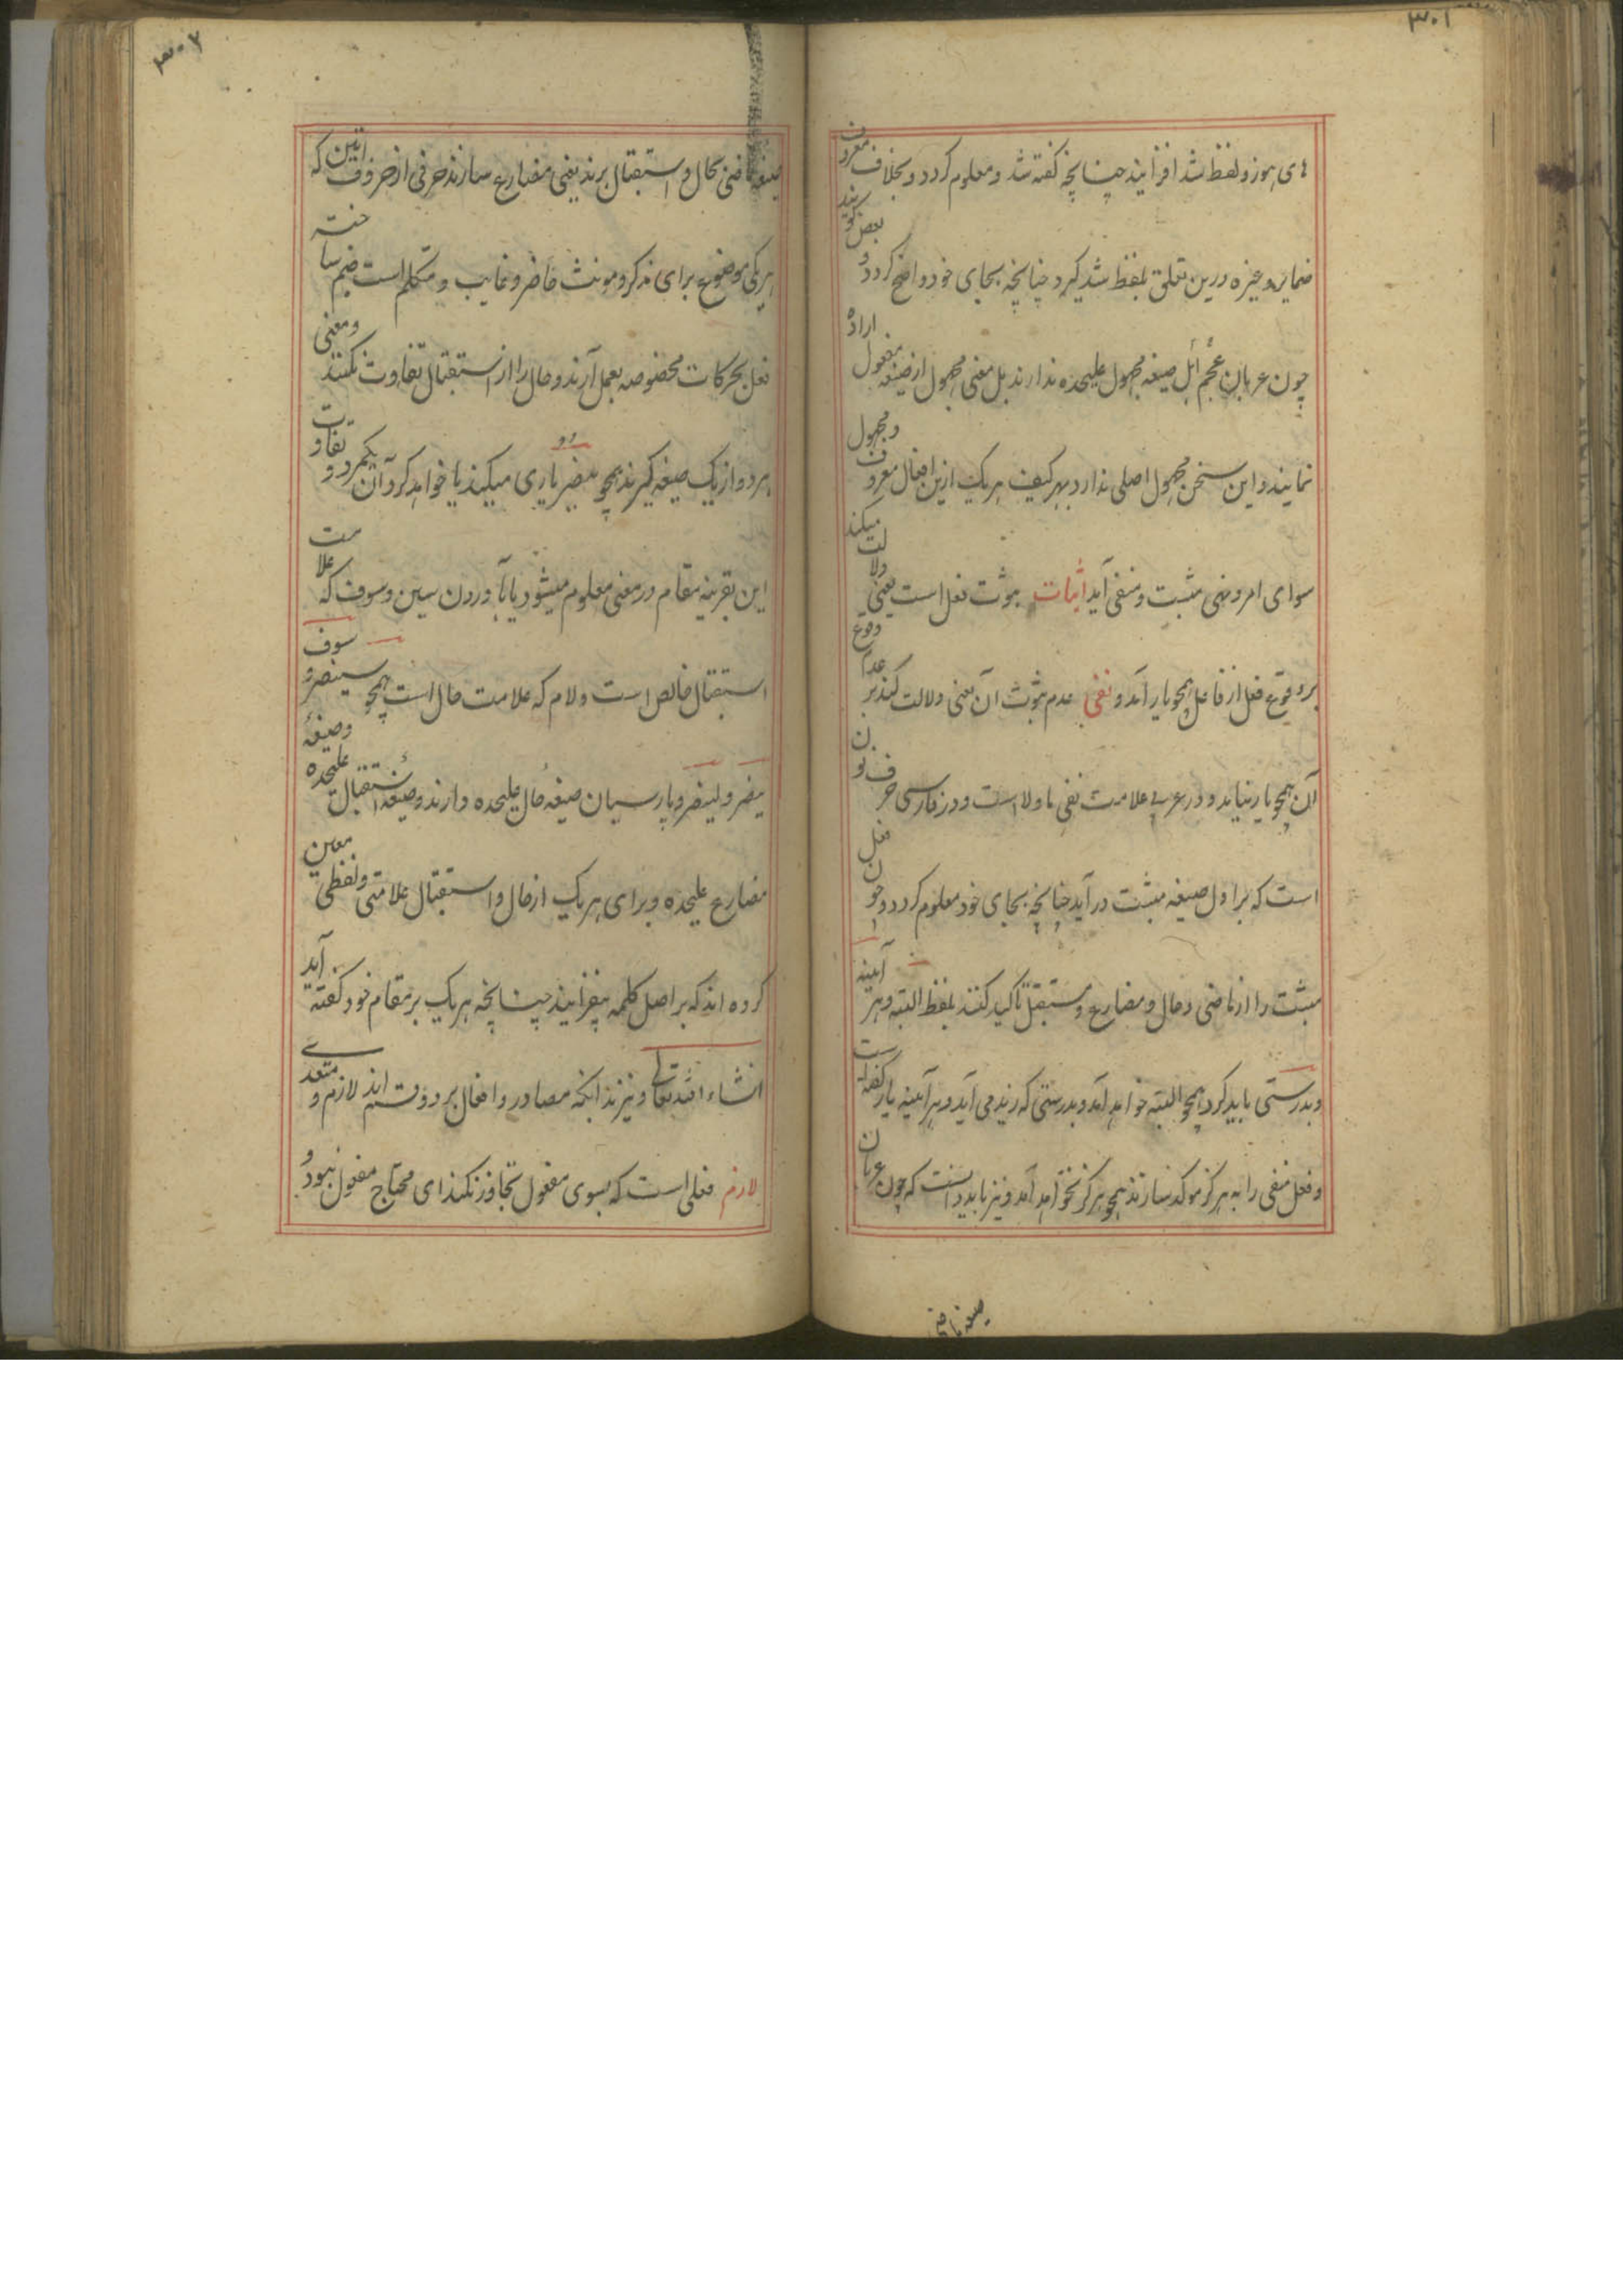 ۳۰۱
های هوز و لفظ شد افزایند چنانچه گفته شد و معلوم گردد و بخلاف معروف
ضمایر و غیره درین تعلق بلفظ شد گیرد چنانچه بجای خود واضح گردد و بعض گویند
چون عربان عجم صیغه مجهول علیحده ندارند بل معنی مجهول از صیغه مفعول اراده
نمایند و این سخن مجهول اصلی ندارد بهر کیف هر یک ازین افعال معروف و مجهول
سوای امر و نهی مثبت و منفی آید اثبات ثبوت فعل است یعنی دلالت میکند
بر وقوع فعل از فاعل همچو یار آمد و نفی عدم ثبوت آن یعنی دلالت کند بر عدم وقوع
آن همچو یار نیامد و در عربی علامت نفی ما و لا است و در فارسی حرف نون
است که بر اول صیغه مثبت در آید چنانچه بجای خود معلوم گردد و چون فعل
مثبت را از ماضی و حال و مضارع و مستقبل تاکید کنند بلفظ البته و هر آیینه
و بدرستی باید کرد همچو البته خواهد آمد و بدرستی که زید می آید و هر آیینه یار گفته است
و فعل منفی را به هرگز موکد سازند همچو هرگز نخواهد آمد و نیز باید دانست که چون عربان
صیغه ماضی
۳۰۲
صیغه ماضی بحال و استقبال برند یعنی مضارع سازند حرفی از حروف اتین که
هر یکی موضوع برای مذکر و مونث حاضر و غایب و متکلم است ضم ساخته
فعل بحرکات مخصوصه بعمل آرند و حال را از استقبال تفاوت نکنند و معنی
هر دو از یک صیغه گیرند همچو ینصر یاری میکند یا خواهد کرد آن یکمرد و تفاوت
این بقرینه مقام در معنی معلوم میشود یا بآوردن سین و سوف که علامت
استقبال خالص است و لام که علامت حال است همچو سینصر و سوف
ینصر و لینصر و پارسیان صیغهٔ حال علیحده دارند و صیغهٔ استقبال علیحده و صیغهٔ
مضارع علیحده و برای هر یک از حال و استقبال علامتی و لفظی معین
کرده اند که بر اصل کلمه بیفزایند چنانچه هر یک بر مقام خود گفته آید
انشاء الله تعالی و نیز بدانکه مصادر و افعال بر دو قسم اند لازم و متعدی
لازم فعلی است که بسوی مفعول تجاوز نکند ای محتاج مفعول نبود و